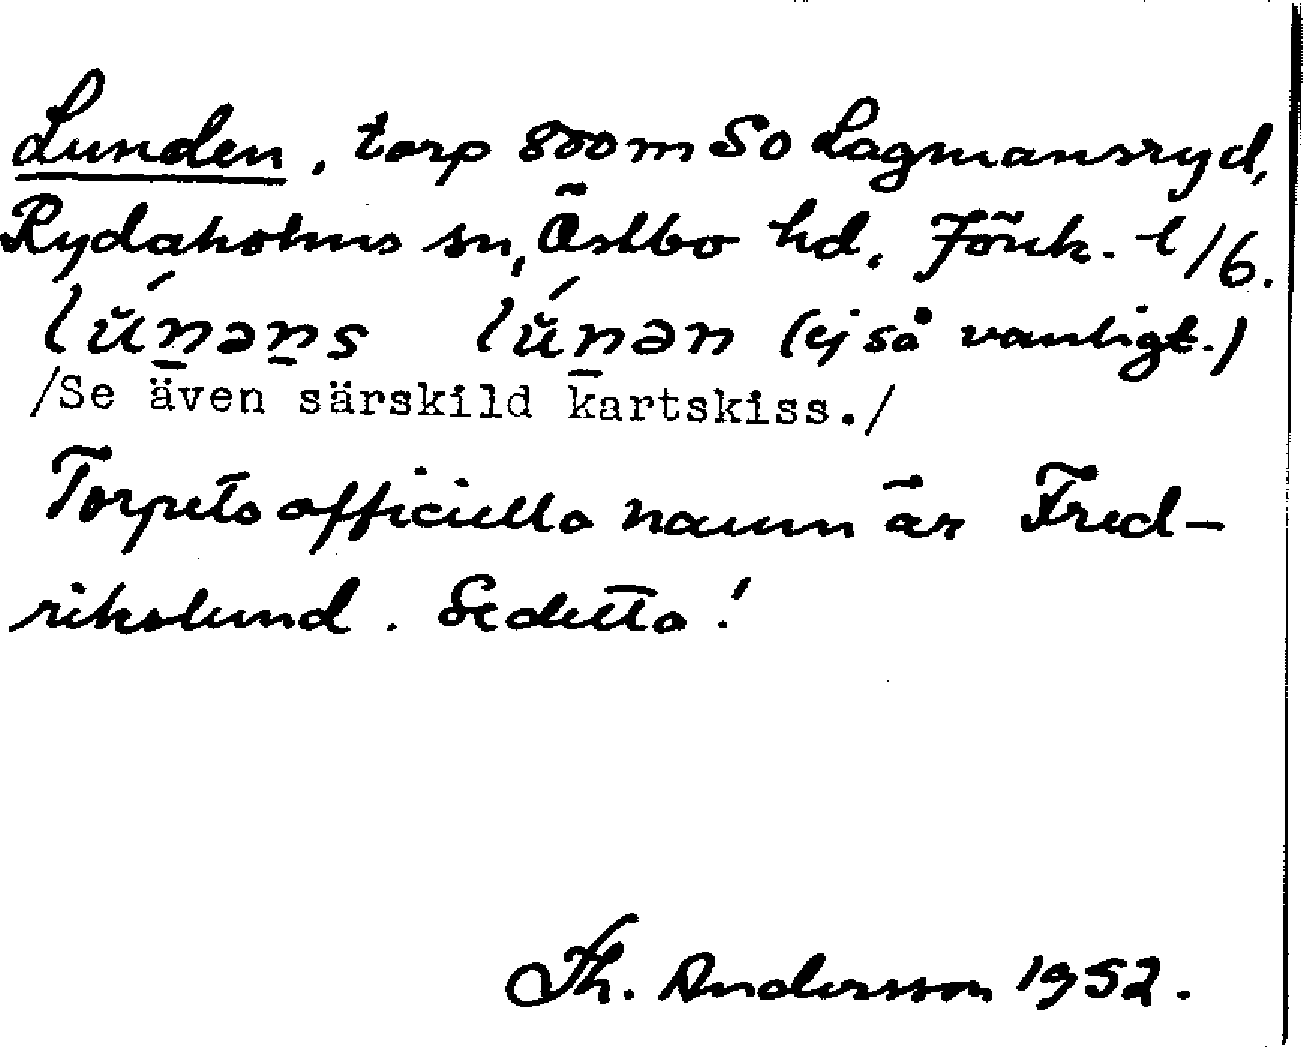 Lunden, torp 800 m SO Lagmansryd,
Rydaholms sn, Östbo hd, Jönk. l/6.
lú̆n̠ən̠s lú̆n̠ən (ej så vanligt.)
/Se även särskild kartskiss./
Torpets officiella namn är Fred-
rikslund. Se detta!
Th. Andersson 1952.